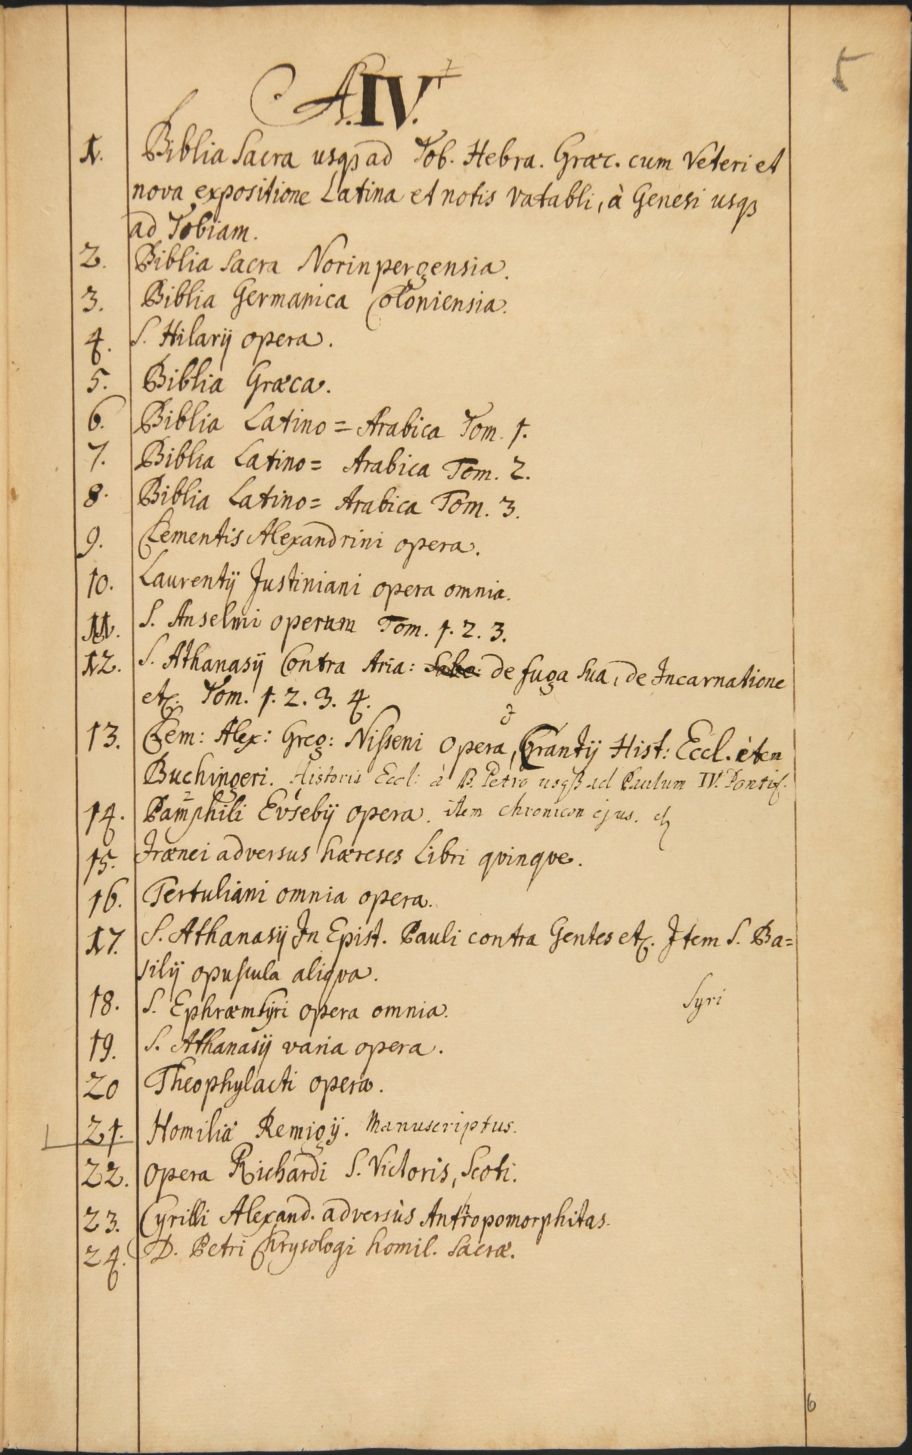 5
A.IV.
1. Biblia Sacra usqȝ ad Tob. Hebra. Græc. cum Veteri et
nova expositione Latina et notis Vatabli, à Genesi usqȝ
ad Tobiam.
2. Biblia Sacra Norinpergensia.
3. Biblia Germanica Coloniensia.
4. S. Hilarij opera.
5. Biblia Græca.
6. Biblia Latino = Arabica Tom. 1.
7. Biblia Latino = Arabica Tom. 2.
8. Biblia Latino = Arabica Tom. 3.
9. Clementis Alexandrini opera.
10. Laurentij Justiniani opera omnia.
11. S. Anselmi operum Tom. 1. 2. 3.
12. S. Athanasij Contra Aria: de fuga Sua, de Incarnatione
etc. Tom. 1. 2. 3. 4.
13. Clem: Alex: Greg: Nisseni opera, Crantij Hist: Eccl. item
Buchingeri. Historia Eccl: à D. Petro usqȝ ad Paulum IV. Pontif.
14. Pamphili Evsebij opera. item chronicon ejus. etc
15. Irænei adversus hæreses Libri qvinqve.
16. Tertuliani omnia opera.
17. S. Athanasij In Epist. Pauli contra Gentes etc. Item S. Ba=
silij opuscula aliqva.
18. S. Ephræm Syri opera omnia. Syri
19. S. Athanasij varia opera.
20 Theophylacti opera.
21. Homiliæ Remigij. Manuscriptus.
22. Opera Richardi S. Victoris, Scoti.
23. Cyrilli Alexand. adversùs Antropomorphitas.
24. D. Petri Chrysologi homil. Sacræ.
6